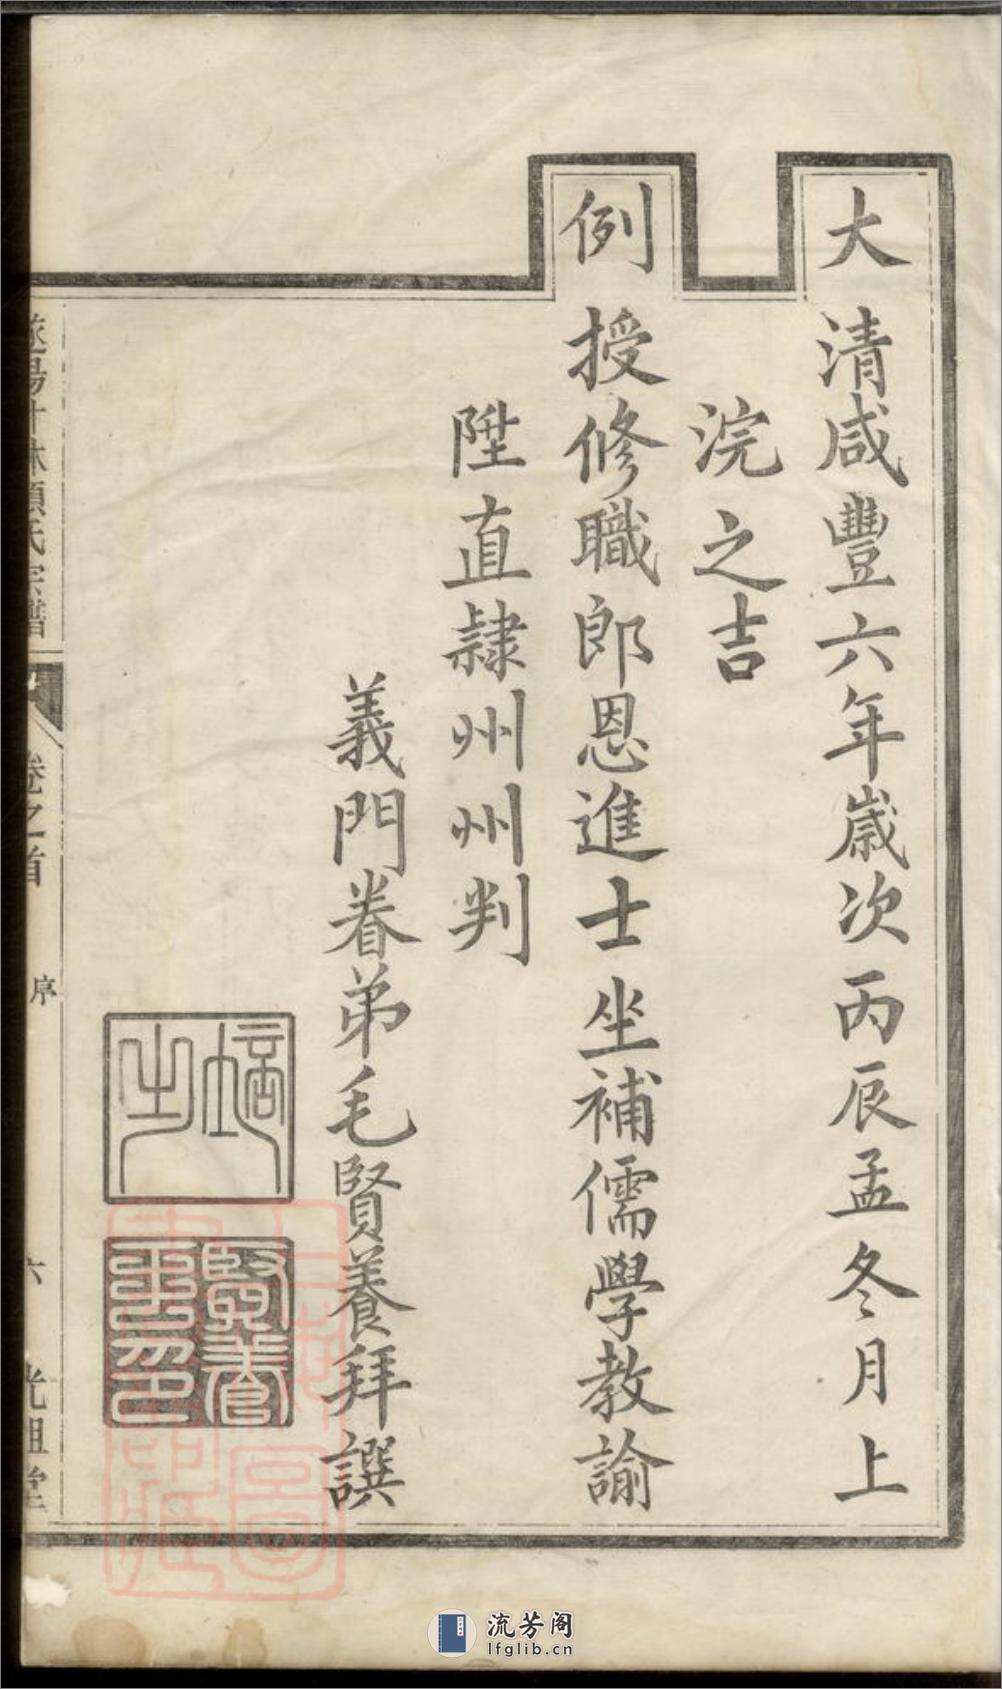 大清咸豐六年嵗次丙辰孟冬月上
浣之吉
例授修職郎恩進士坐補儒學教諭
陞直隸州州判
義門眷弟毛賢養拜譔
賢養
之印
項氏宗譜
卷之首
序
六
光祖堂
流芳阁
lfglib.cn